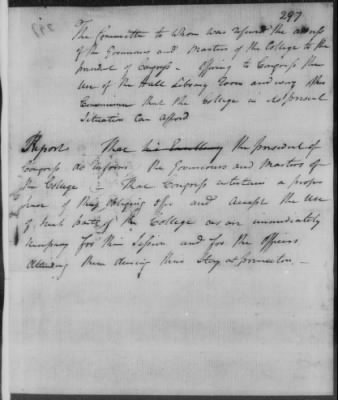 297
The Committee to whom was referred the address
of the Governours and Masters of the College to the
president of Congress - Offering to Congress the
Use of the Hall Library Room and every other
Convenience that the College in its present
Situation can afford
Report That his Excellency the president of
Congress do inform the Governours and Masters of
the College - That Congress entertain a proper
sense of their obliging offer and accept the Use
of such parts of the College as are immediately
necessary for their Session and for the Officers
attending them during their Stay at princeton -